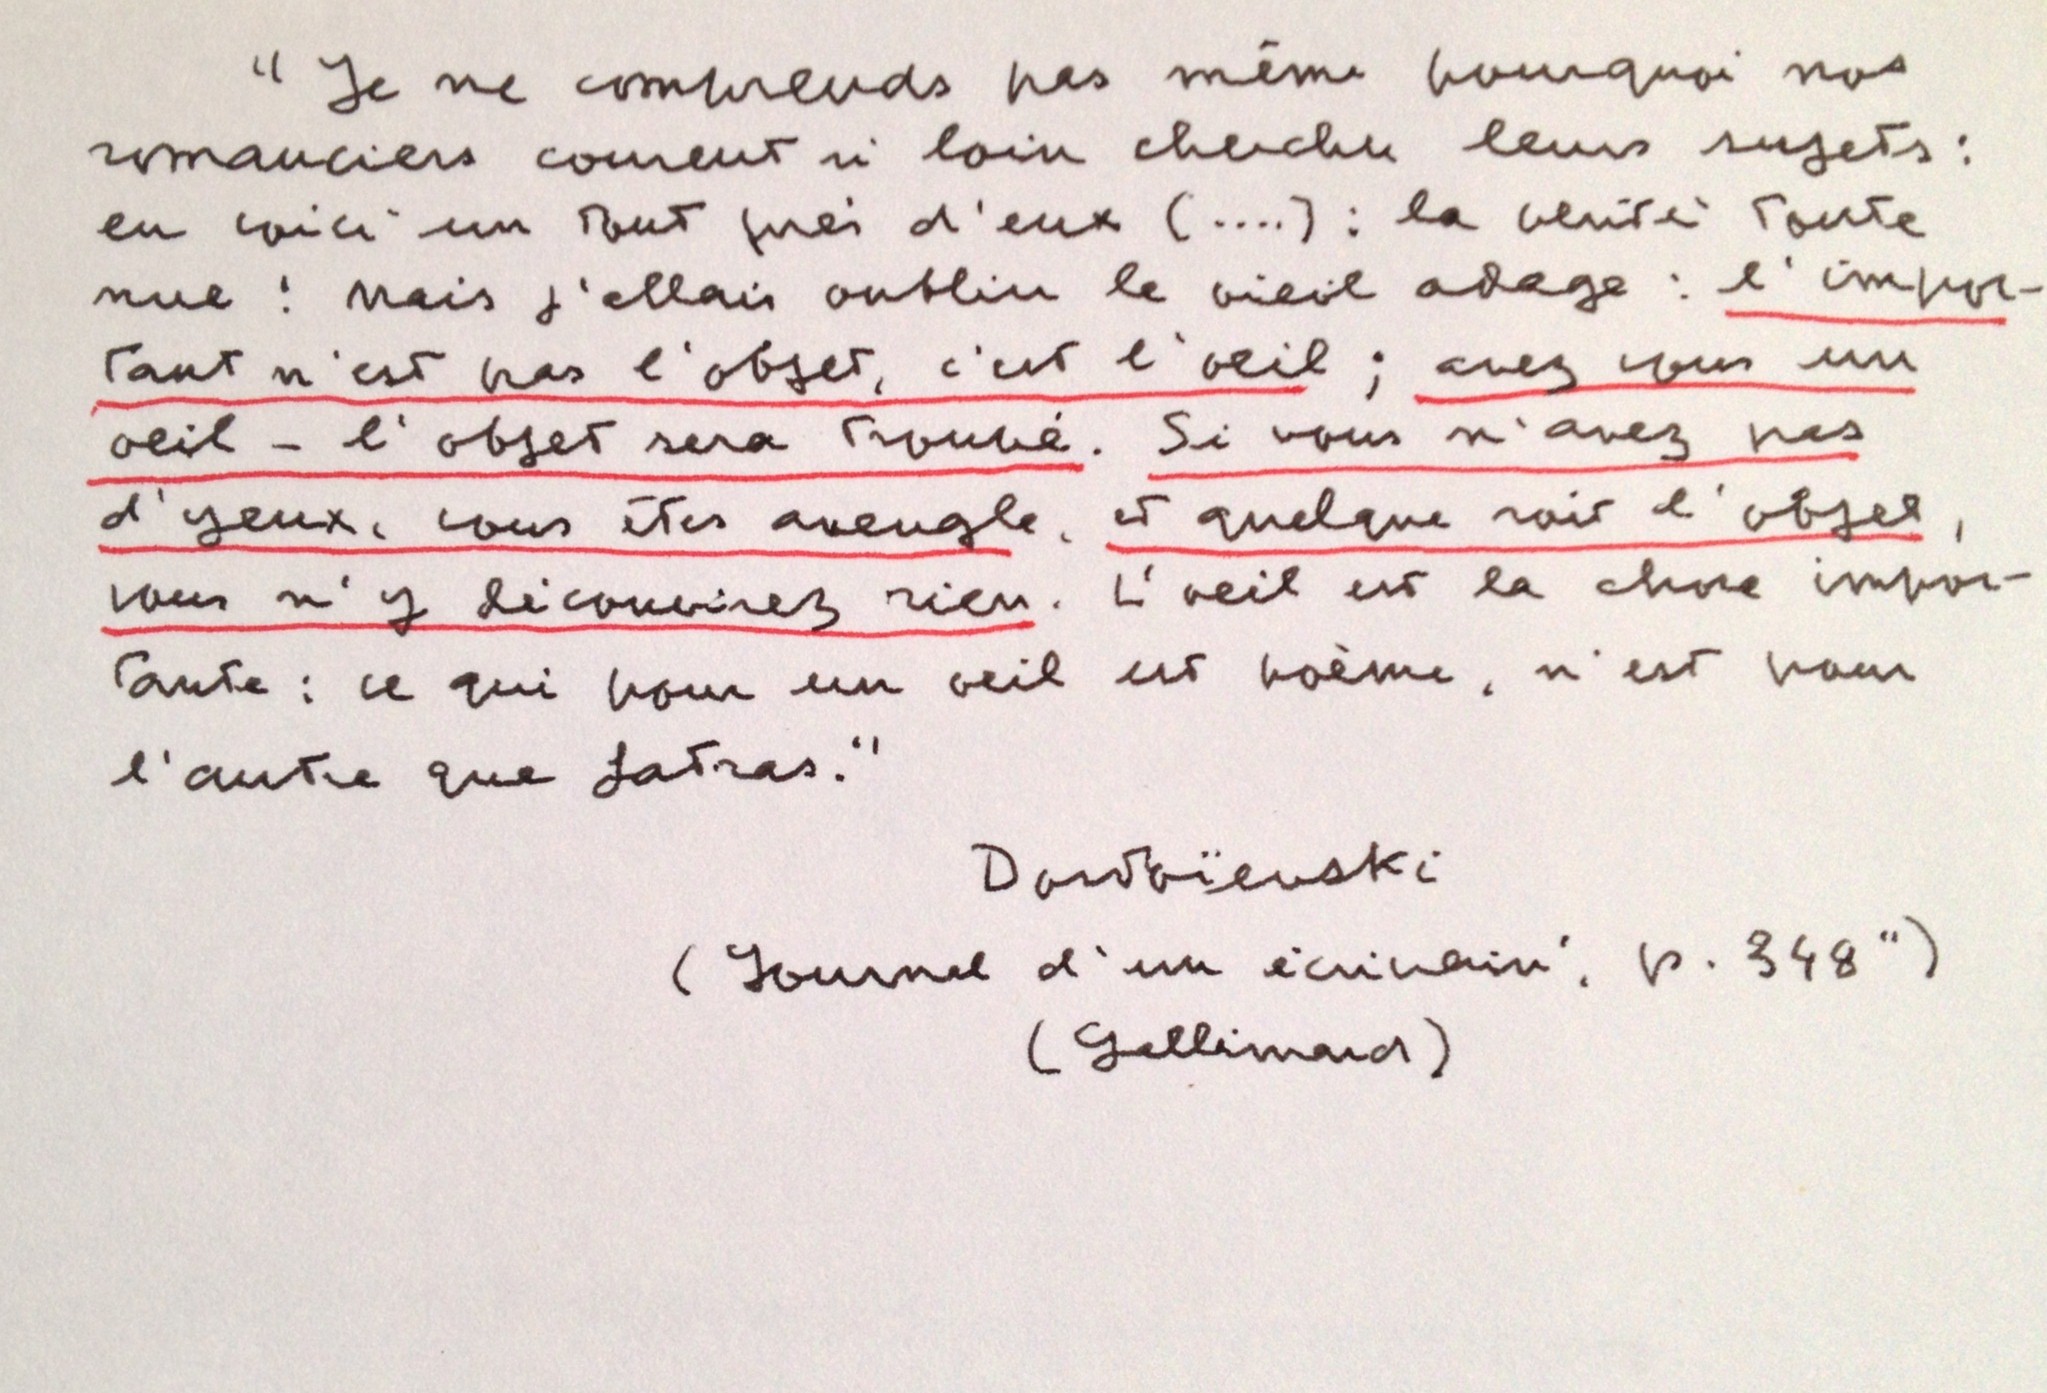 "Je ne comprends pas même pourquoi nos
romanciers courent si loin chercher leurs sujets :
en voici un tout près d'eux (....) : la vérité toute
nue ! Mais j'allais oublier le vieil adage : l'impor-
tant n'est pas l'objet, c'est l'oeil ; avez vous un
oeil - l'objet sera trouvé. Si vous n'avez pas
d'yeux, vous êtes aveugle, et quelque soit l'objet,
vous n'y découvrirez rien. L'oeil est la chose impor-
tante : ce qui pour un oeil est poème, n'est pour
l'autre que fatras."
Dostoïevski
(Journal d'un écrivain', p. 348")
(Gallimard)